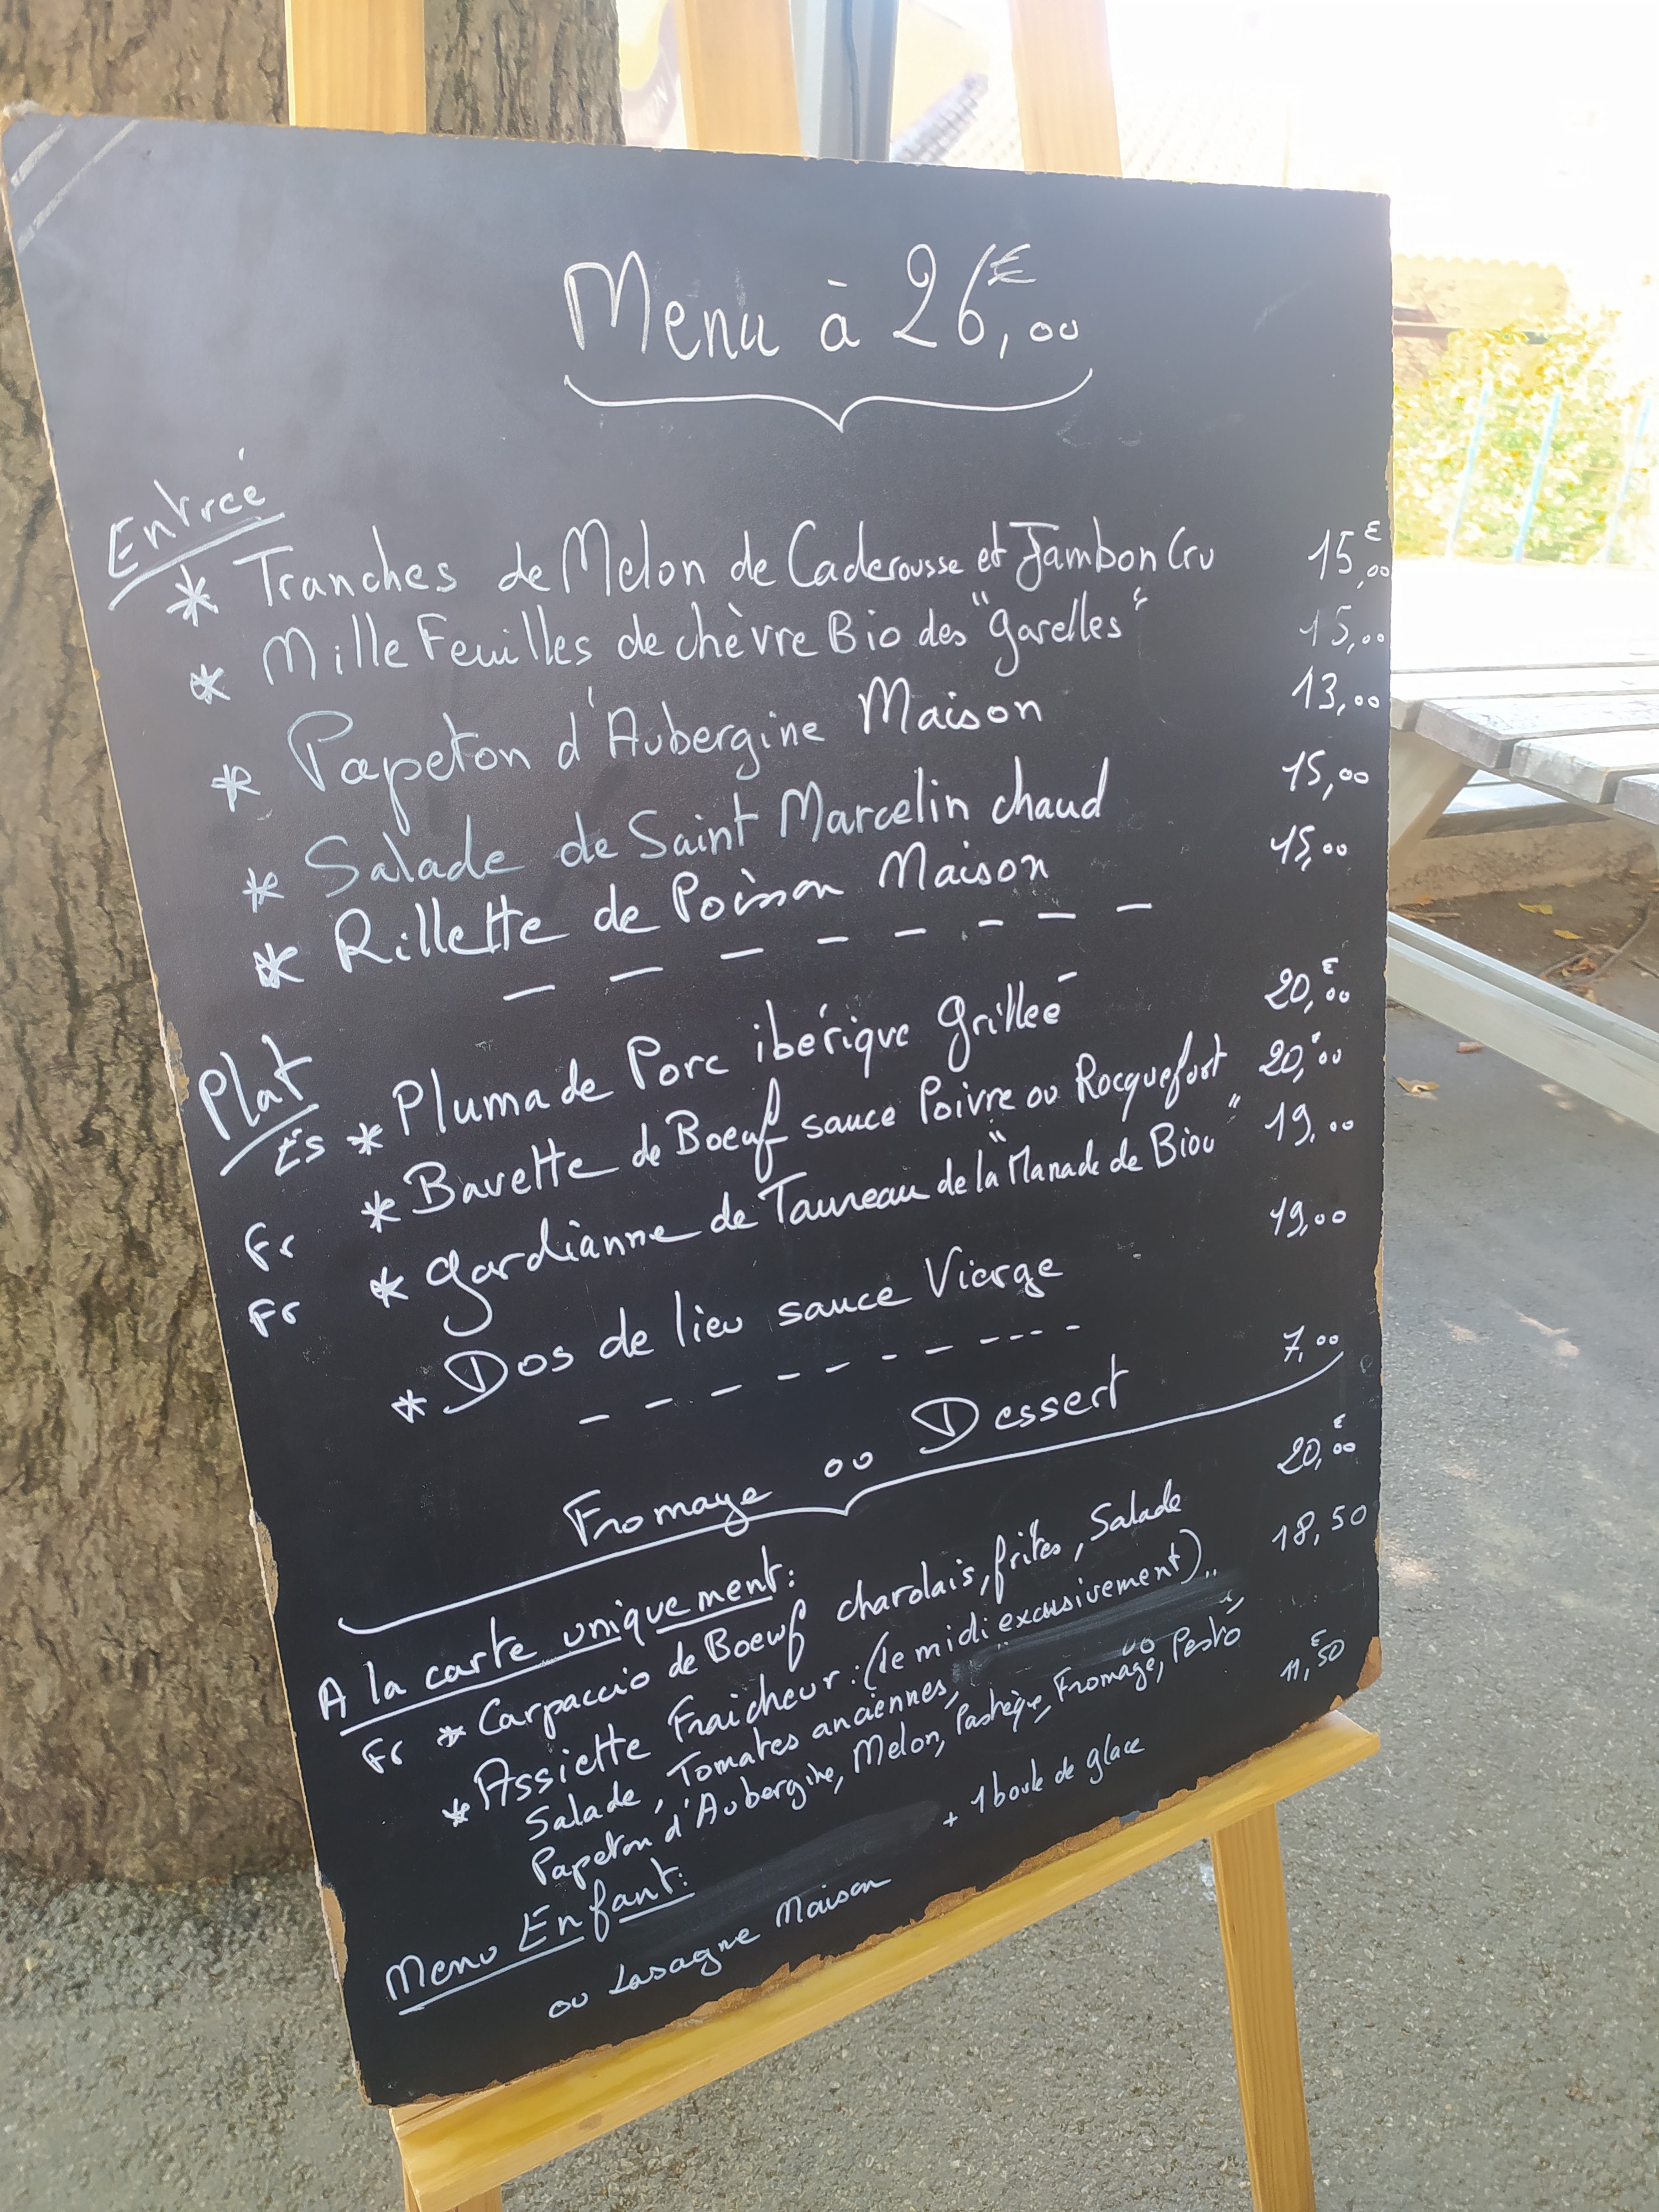 Menu à 26,00€
Entrée
* Tranches de Melon de Caderousse et Jambon Cru 15,00€
* Mille Feuilles de chèvre Bio des "Garelles" 15,00
* Papeton d'Aubergine Maison 13,00
* Salade de Saint Marcelin chaud 15,00
* Rillette de Poisson Maison 15,00
Plat
Es * Pluma de Porc ibérique Grillée 20,00€
Fr * Bavette de Boeuf sauce Poivre ou Rocquefort 20,00
Fr * Gardianne de Taureau de la "Manade de Biou" 19,00
* Dos de lieu sauce Vierge 19,00
Fromage ou Dessert 7,00
A la carte uniquement:
Fr * Carpaccio de Boeuf charolais, frites, Salade 20,00€
* Assiette Fraicheur: (le midi excusivement).. 18,50
Salade, Tomates anciennes,
Papeton d'Aubergine, Melon, Pastèque, Fromage, Pesto
Menu Enfant: 11,50€
+ 1 boule de glace
ou Lasagne Maison